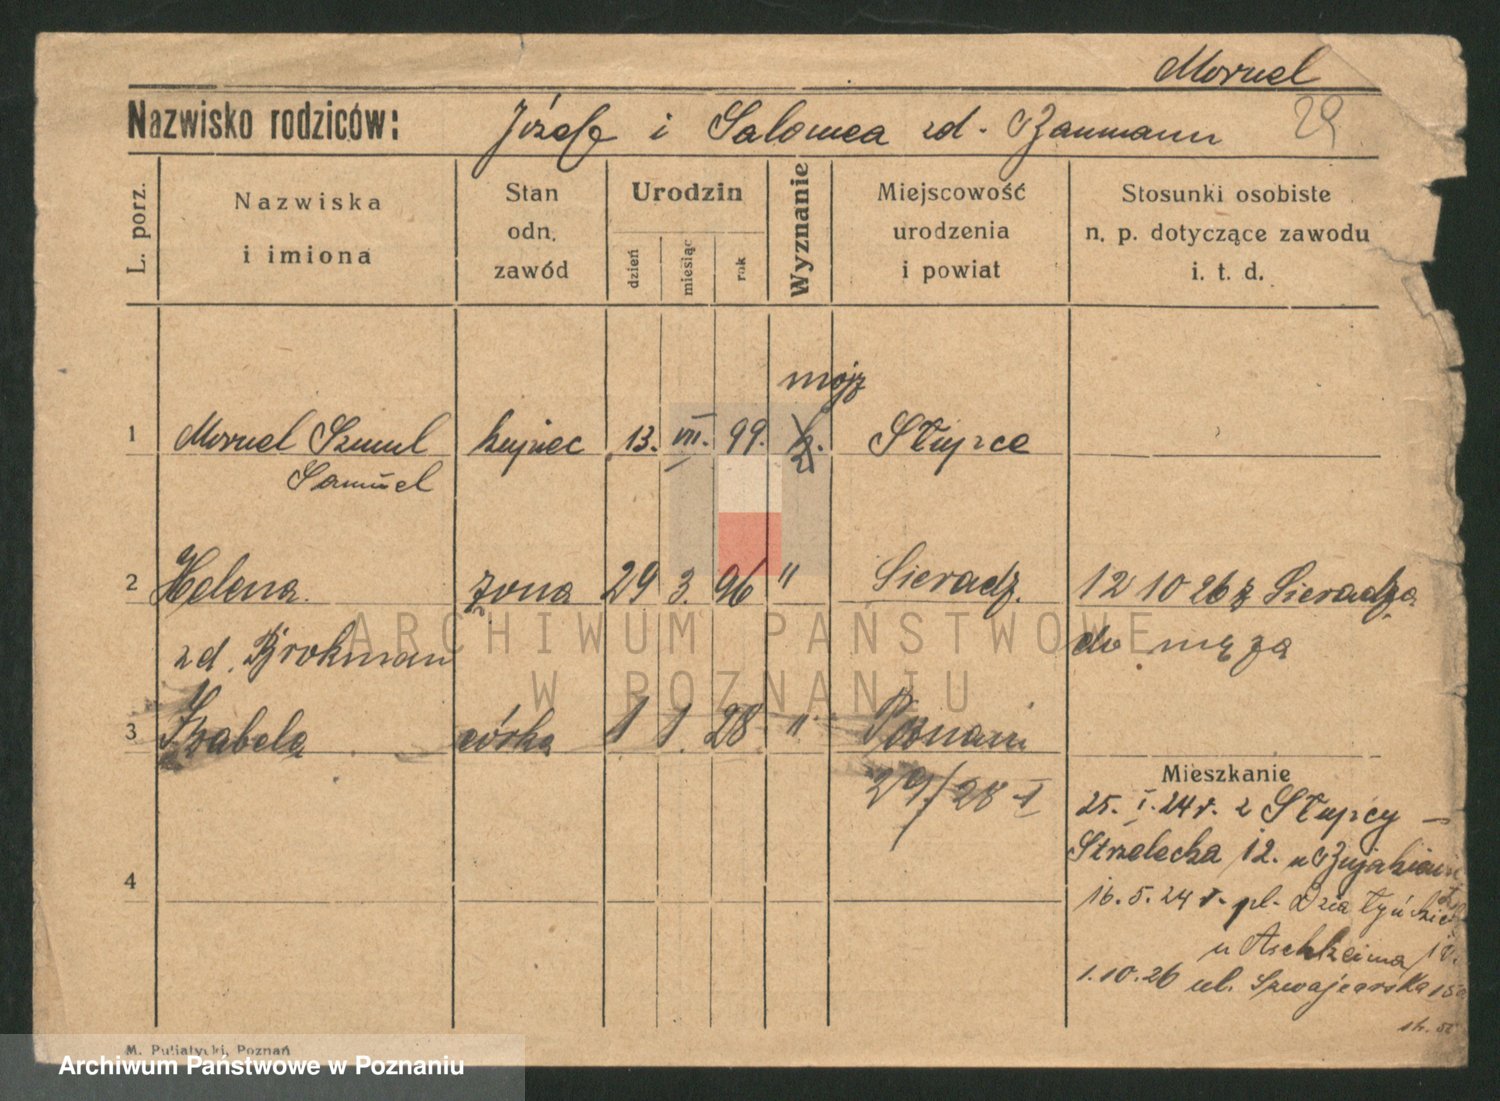 Moruel
Nazwisko rodziców: Józef i Salomea zd. Baumann 29
L. porz.
Nazwiska
i imiona
Stan
odn.
zawód
Urodzin
dzień
miesiąc
rok
Wyznanie
Miejscowość
urodzenia
i powiat
Stosunki osobiste
n. p. dotyczące zawodu
i. t. d.
mojż
1 Moruel Szmul kupiec 13. VII. 99. Słupce
Samuel
2 Helena żona 29 3. 96 " Sieradz. 12 10 26 z Sieradza
zd. Brokman do męża
3 Izabela córka 1 1. 28 " Poznań
29/28 I
Mieszkanie
25. I. 24 r. z Słupcy –
Strzelecka 12. u
4
16. 5. 24 r. pl.
u Aschheima
1.10.26 ul. Szwajcarska
M. Putiatycki, Poznań
ARCHIWUM PAŃSTWOWE
W POZNANIU
Archiwum Państwowe w Poznaniu